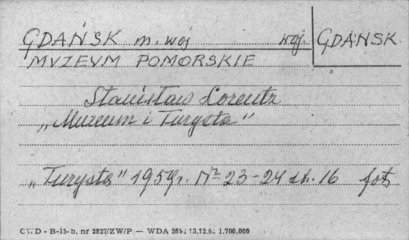 GDAŃSK m. woj woj. GDAŃSK
MVZEVM POMORSKIE
Stanisław Lorentz
„Muzeum i Turysta"
„Turysta" 1959r. Nr 23-24 str. 16 fot.
CWD - B-15-b, nr 2827/ZW/P — WDA 265; 13.12.6. 1.700.000